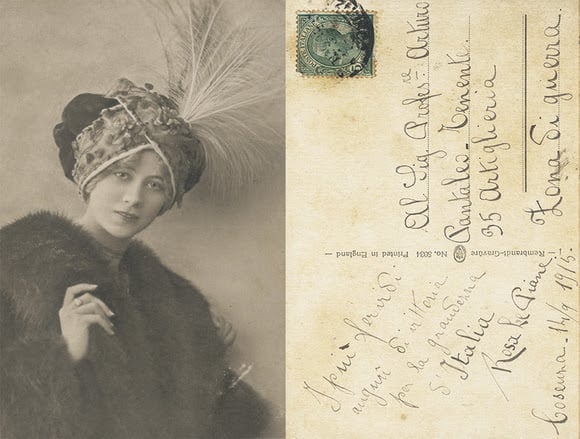 Al Sig. Profes.re Arturo
Pantaleo - Tenente
35 Artiglieria
Zona di guerra.
Rembrandt-Gravüre No. 5034 Printed in England
I più fervidi
auguri di vittoria
per la grandezza
d'Italia
Rosa De Piane
Cosenza - 14/9 1915